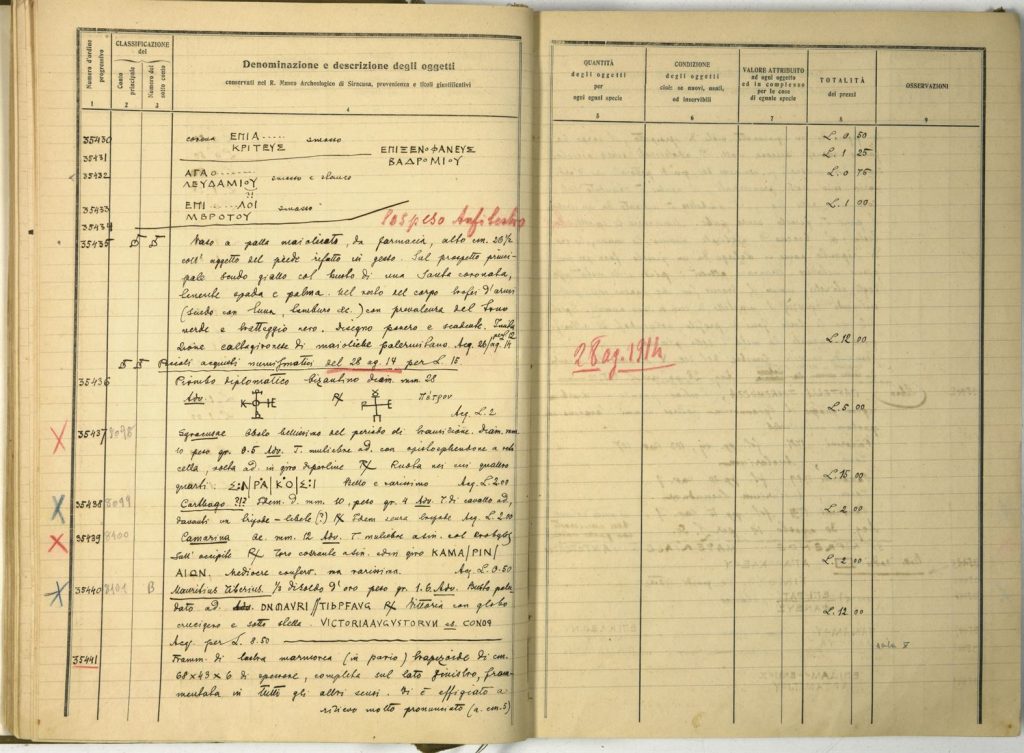 Numero d'ordine progressivo
CLASSIFICAZIONE del
Conto principale
Numero del sotto conto
Denominazione e descrizione degli oggetti
conservati nel R. Museo Archeologico di Siracusa, provenienza e titoli giustificativi
1 2 3 4
35430 ΕΠΙΑ ..... smusso
ΚΡΙΤΕΥΣ ΕΠΙΞΕΝΟΦΑΝΕΥΣ
35431 ΒΑΔΡΟΜΙΟΥ
35432 ΑΓΑΘ .....
ΛΕΥΔΑΜΙΟΥ smusso e
35433 ΕΠΙ ..... ΛΟΙ smusso
ΜΒΡΟΤΟΥ
35434 Sospeso
35435 5 5 Vaso a palla maiolicato, da farmacia, alto cm. 26 1/2
coll' oggetto del piede rifatto in gesso. Sul prospetto princi-
pale scudo giallo col busto di una Santa coronata,
tenente spada e palma. Nel resto del corpo trofei d'armi
(scudo con luna, tamburo ec.) con prevalenza del
verde e tratteggio nero. Disegno povero e scadente.
zione caltagironese di maioliche palermitane Acq. 26/ag. 14
5 5 Piccoli acquisti numismatici del 28 ag. 14 per L. 15
35436 Piombo diplomatico bizantino diam. mm. 28
Adv. Πέτρου
Acq. L. 2
35437 8098 Syracusae Obolo bellissimo del periodo di transizione. Diam. mm
10 peso gr. 0.5 Adv. T. muliebre ad. con
cella, volta ad. in giro R Ruota nei cui quattro
quarti: Σ:Λ|ΡΑ|ΚΟ|Σ:Ι Bello e rarissimo Acq. L. 2.00
35438 8099 Carthago ?!? Idem. d. mm. 10, peso gr. 4 Adv. T. di cavallo ad,
davanti un (?) R Idem senza Acq. L. 2.00
35439 8100 Camarina ae. mm. 12 Adv. T. muliebre a sin. col krobylos
sull' occipite R Toro cozzante a sin. ed in giro ΚΑΜΑ/ΡΙΝ/
ΑΙΩΝ. Mediocre conserv. ma rarissima. Acq. L. 0.50
35440 8101 B Mauritius Tiberius. 1/2 di soldo d'oro peso gr. 1.6. Adv. Busto
dato ad. DNMAVRI//TIbPFAVG R Vittoria con globo
crucigero e sotto stella. VICTORIAAVGVSTORVM es. CONOB
Acq. per L. 8.50
35441 Framm. di lastra marmorea (in pario) trapezoide di cm.
68x43x6 di spessore, completa sul lato sinistro, fram-
mentata in tutti gli altri sensi. Vi è effigiato a
rilievo molto pronunciato (a. cm. 5)
QUANTITÀ degli oggetti per ogni egual specie
CONDIZIONE degli oggetti cioè: se nuovi, usati, ed inservibili
VALORE ATTRIBUITO ad ogni oggetto ed in complesso per le cose di eguale specie
TOTALITÀ dei prezzi
OSSERVAZIONI
5 6 7 8 9
L. 0 50
L. 1 25
L. 0 75
L. 1 00
L. 12 00
28 ag. 1914
L. 5 00
L. 15 00
L. 2 00
L. 2 00
L. 12 00
sala V